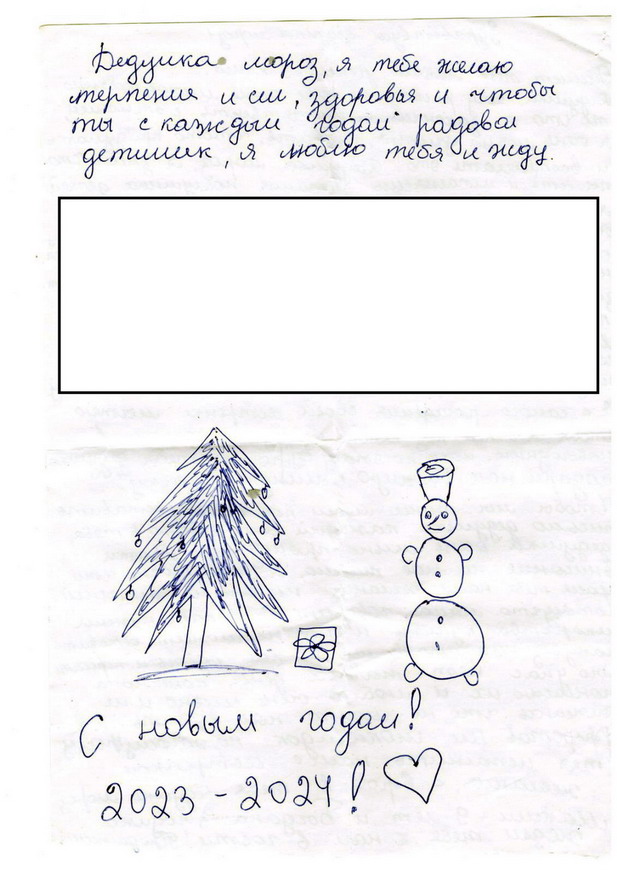 Дедушка мороз, я тебе желаю
терпения и сил, здоровья и чтобы
ты с каждым годом радовал
детишик, я люблю тебя и жду.
С новым годом!
2023-2024!